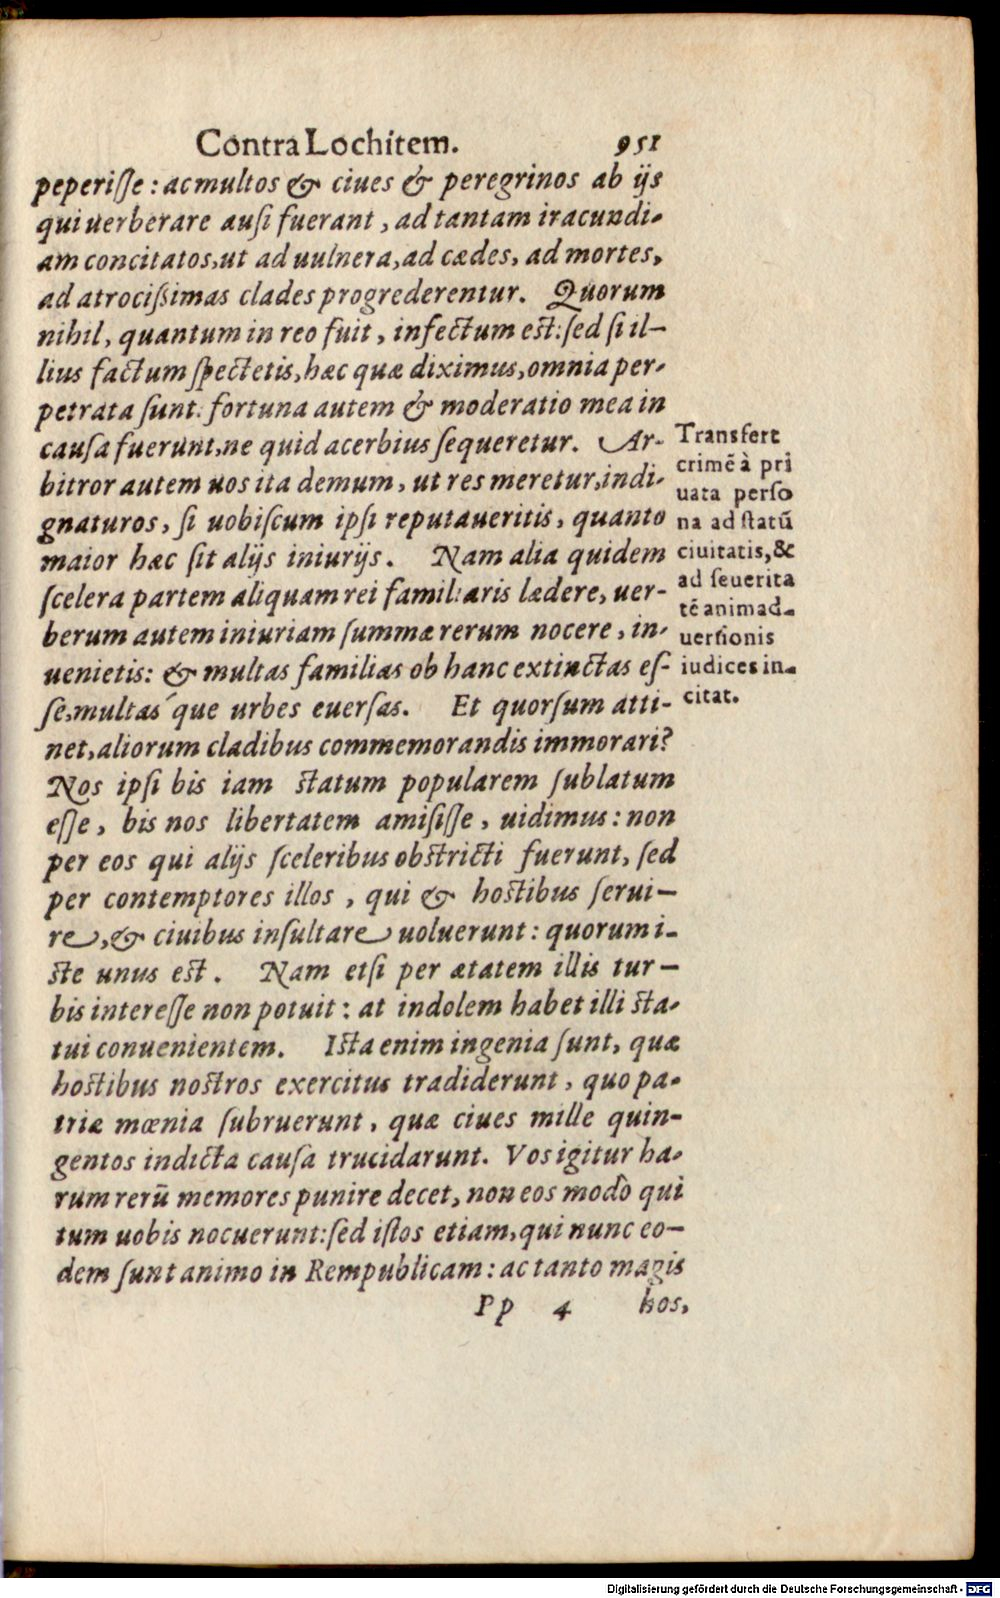 Contra Lochitem. 951
peperiſſe: ac multos & ciues & peregrinos ab ijs
qui uerberare auſi fuerant, ad tantam iracundi-
am concitatos, ut ad uulnera, ad cædes, ad mortes,
ad atrociſsimas clades progrederentur. Quorum
nihil, quantum in reo fuit, infectum est: ſed ſi il-
lius factum ſpectetis, hæc quæ diximus, omnia per-
petrata ſunt: fortuna autem & moderatio mea in
cauſa fuerunt, ne quid acerbius ſequeretur. Ar-
bitror autem uos ita demum, ut res meretur, indi-
gnaturos, ſi uobiſcum ipſi reputaueritis, quanto
maior hæc ſit alijs iniurijs. Nam alia quidem
ſcelera partem aliquam rei familiaris lædere, uer-
berum autem iniuriam ſummæ rerum nocere, in-
uenietis: & multas familias ob hanc extinctas eſ-
ſe, multas´que urbes euerſas. Et quorſum atti-
net, aliorum cladibus commemorandis immorari?
Nos ipſi bis iam statum popularem ſublatum
eſſe, bis nos libertatem amiſiſſe, uidimus: non
per eos qui alijs ſceleribus obstricti fuerunt, ſed
per contemptores illos, qui & hostibus ſerui-
re, & ciuibus inſultare uoluerunt: quorum i-
ste unus est. Nam etſi per ætatem illis tur-
bis intereſſe non potuit: at indolem habet illi sta-
tui conuenientem. Ista enim ingenia ſunt, quæ
hostibus nostros exercitus tradiderunt, quo pa-
triæ mœnia ſubruerunt, quæ ciues mille quin-
gentos indicta cauſa trucidarunt. Vos igitur ha-
rum rerū memores punire decet, non eos modò qui
tum uobis nocuerunt: ſed iſtos etiam, qui nunc eo-
dem ſunt animo in Rempublicam: ac tanto magis
Pp 4 hos,
Transfert
crimē à pri
uata perſo
na ad ſtatū
ciuitatis, &
ad ſeuerita
tē animad-
uerſionis
iudices in-
citat.
Digitalisierung gefördert durch die Deutsche Forschungsgemeinschaft - DFG